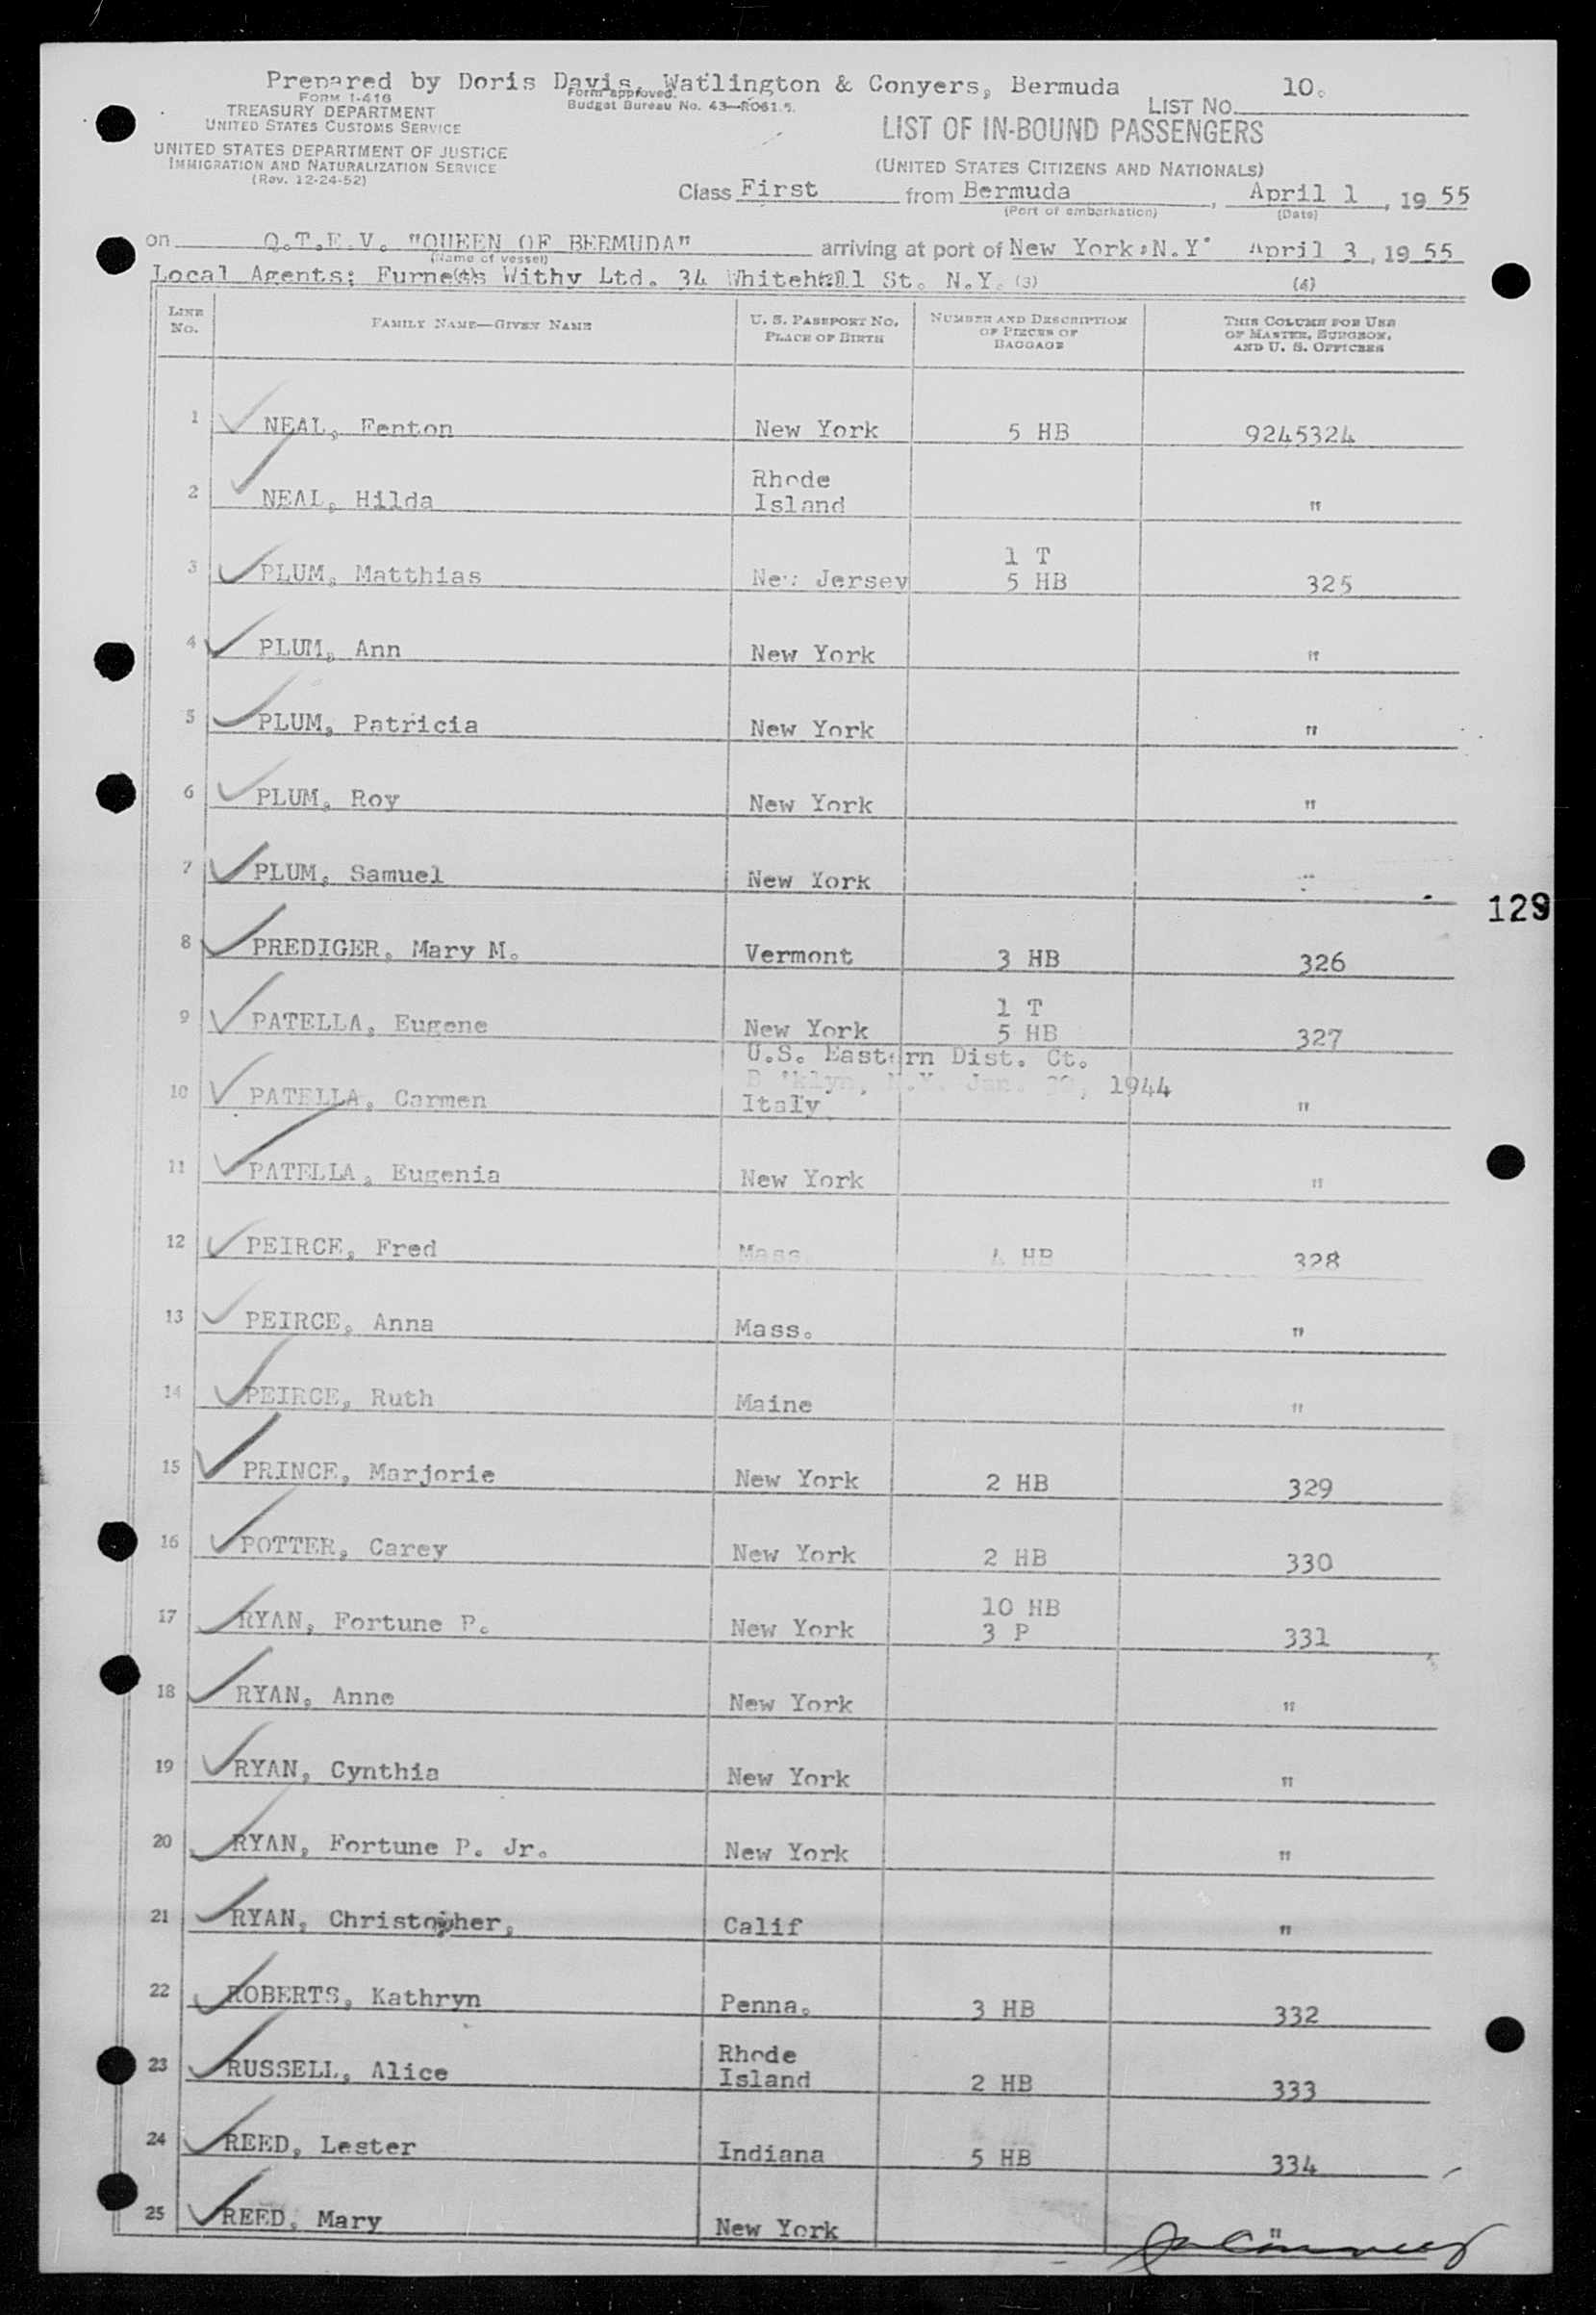 Prepared by Doris Davis, Watlington & Conyers, Bermuda
FORM I-416
TREASURY DEPARTMENT
UNITED STATES CUSTOMS SERVICE
UNITED STATES DEPARTMENT OF JUSTICE
IMMIGRATION AND NATURALIZATION SERVICE
(Rev. 12-24-52)
Form approved.
Budget Bureau No. 43—R061.5.
LIST No. 10.
LIST OF IN-BOUND PASSENGERS
(UNITED STATES CITIZENS AND NATIONALS)
Class First from Bermuda, April 1, 19 55
(Port of embarkation) (Date)
on Q.T.E.V. "QUEEN OF BERMUDA" arriving at port of New York, N.Y. April 3, 19 55
(Name of vessel)
Local Agents: Furness Withy Ltd. 34 Whitehall St. N.Y. (3) (4)
LINE No. FAMILY NAME—GIVEN NAME U. S. PASSPORT NO. PLACE OF BIRTH NUMBER AND DESCRIPTION OF PIECES OF BAGGAGE THIS COLUMN FOR USE OF MASTER, SURGEON, AND U. S. OFFICERS
1 NEAL, Fenton New York 5 HB 9245324
2 NEAL, Hilda Rhode Island "
3 PLUM, Matthias New Jersey 1 T 5 HB 325
4 PLUM, Ann New York "
5 PLUM, Patricia New York "
6 PLUM, Roy New York "
7 PLUM, Samuel New York "
129
8 PREDIGER, Mary M. Vermont 3 HB 326
9 PATELLA, Eugene New York 1 T 5 HB 327
U.S. Eastern Dist. Ct.
N.Y. Jan. 1944
10 PATELLA, Carmen Italy "
11 PATELLA, Eugenia New York "
12 PEIRCE, Fred Mass. 4 HB 328
13 PEIRCE, Anna Mass. "
14 PEIRCE, Ruth Maine "
15 PRINCE, Marjorie New York 2 HB 329
16 POTTER, Carey New York 2 HB 330
17 RYAN, Fortune P. New York 10 HB 3 P 331
18 RYAN, Anne New York "
19 RYAN, Cynthia New York "
20 RYAN, Fortune P. Jr. New York "
21 RYAN, Christopher, Calif "
22 ROBERTS, Kathryn Penna. 3 HB 332
23 RUSSELL, Alice Rhode Island 2 HB 333
24 REED, Lester Indiana 5 HB 334
25 REED, Mary New York "